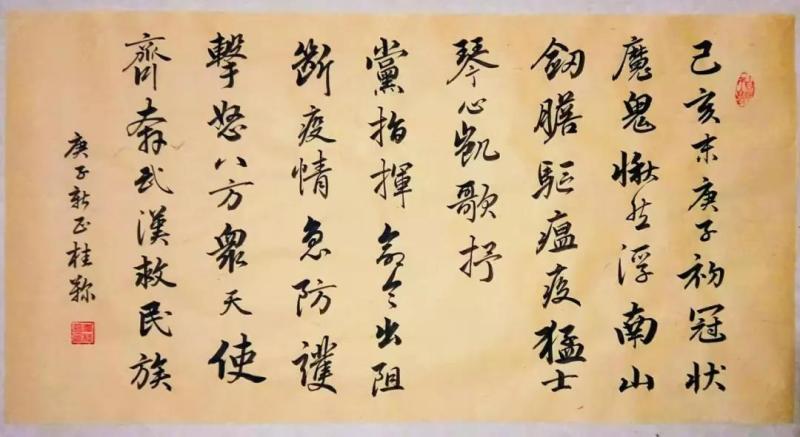 己亥末庚子初冠状
魔鬼愀然浮南山
釼膽驅瘟疫猛士
琴心凱歌抒
黨指揮命令出阻
断疫情急防護
擊怒八方眾天使
齊奔武漢救民族
庚子新正桂